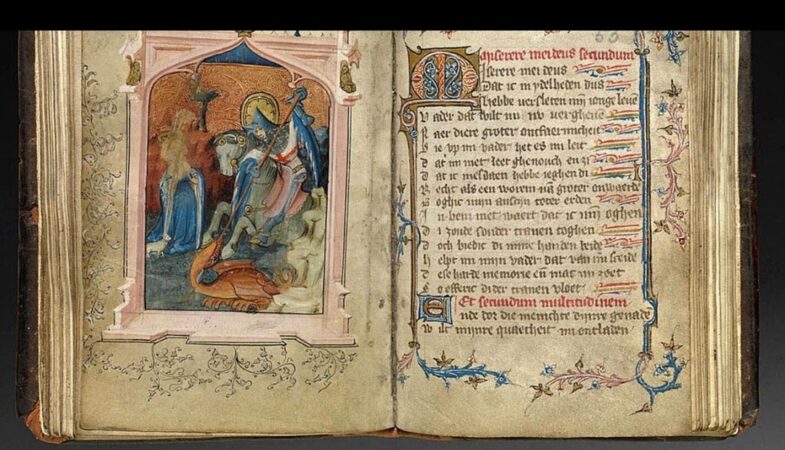 Miserere mei deus secundum
iserere mei deus
Dat ic in ydelheden dus
hebbe versleten mijn ionge leve
V ader dat wilt mi nv vergheve
N aer diere groter ontfaermicheit
S ie vp mi vader het es mi leit
D at met leet ghenouch en zi
D at ic mesdaen hebbe ieghen di
R echt als een worem groter onwaerde
B oghic mijn anscijn toter erden
I n bem niet waert dat ic mijn oghen
D i zonde sonder tranen toghen
D och biedic di mine handen beide
H elpt mi mijn vader dat van mi sceide
D ese harde memorie en mi zoet
S o offeric di der tranen vloet
Et secundum multitudinem
E nde dor die menichte dijnre genade
W ilt mijnre quaetheit mi ontladen